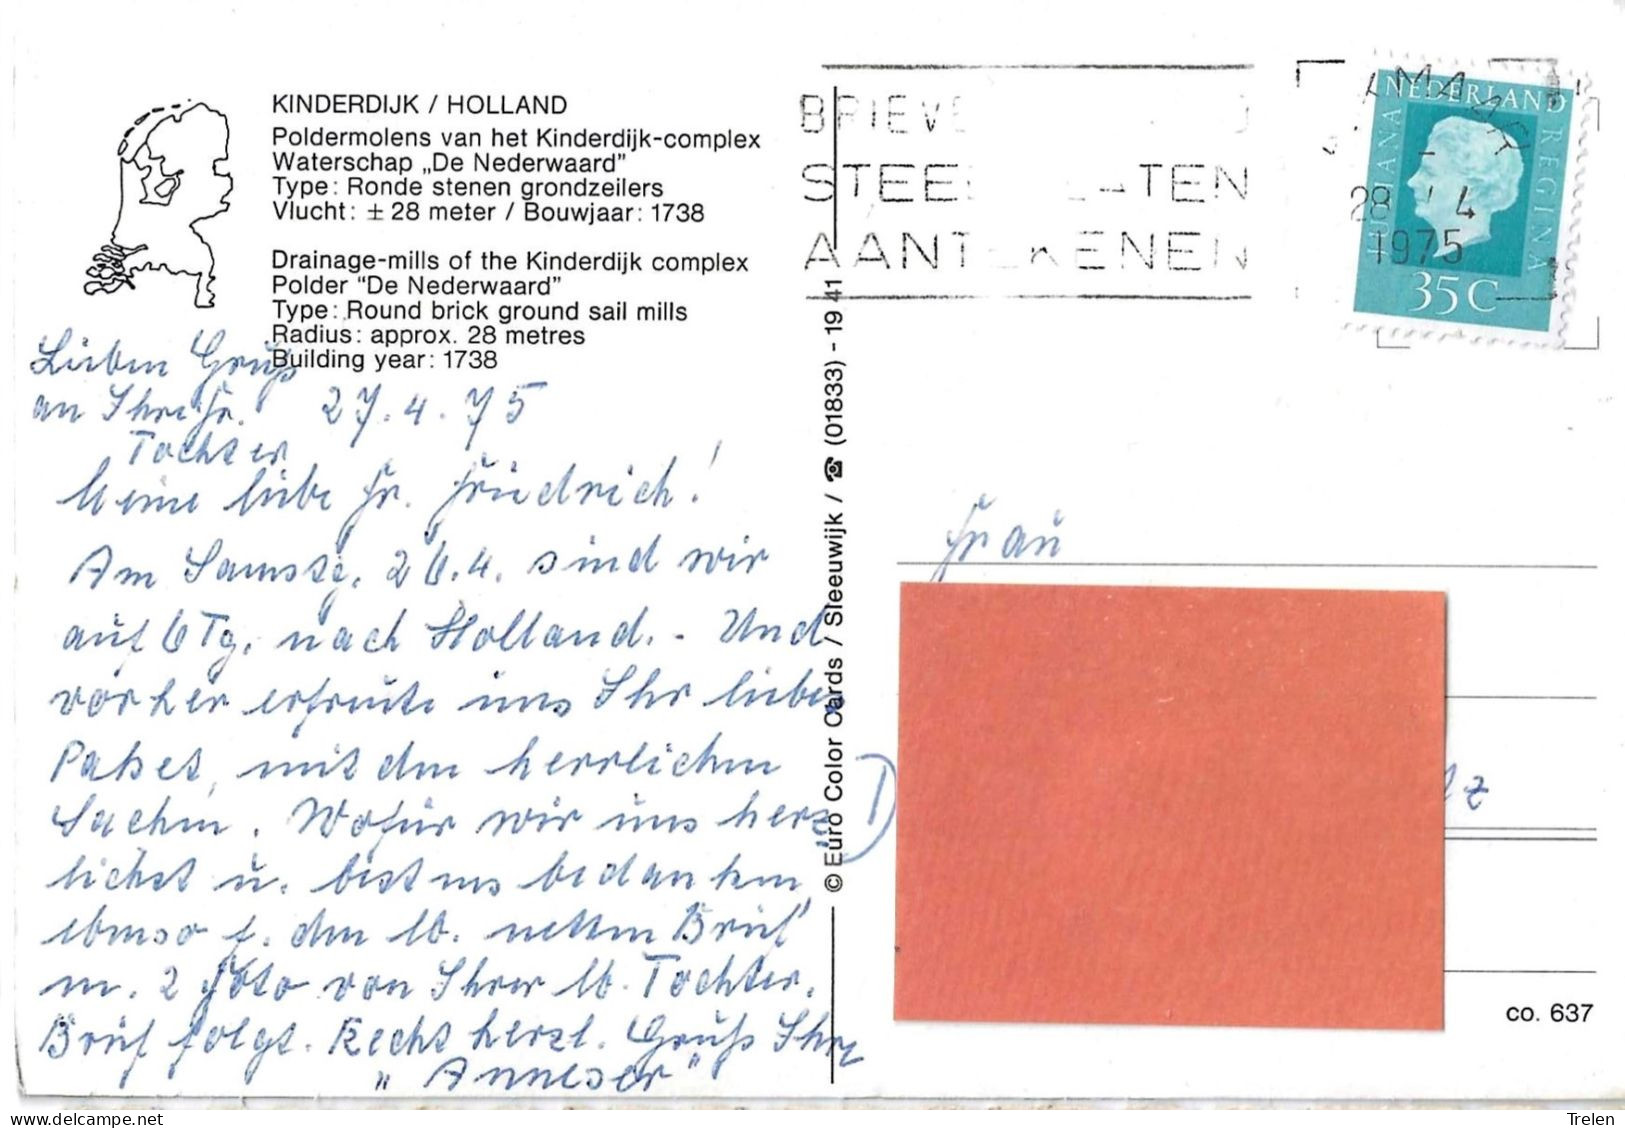 KINDERDIJK / HOLLAND
Poldermolens van het Kinderdijk-complex
Waterschap „De Nederwaard"
Type: Ronde stenen grondzeilers
Vlucht: ± 28 meter / Bouwjaar: 1738
Drainage-mills of the Kinderdijk complex
Polder "De Nederwaard"
Type: Round brick ground sail mills
Radius: approx. 28 metres
Building year: 1738
Lieben Gruß
an Ihre Fr.
Tochter
27.4.75
Meine liebe Fr. Friedrich!
Am Samstg. 26.4. sind wir
auf 6 Tg. nach Holland. - Und
vorher erfreute uns Ihr liebes
Paket, mit den herrlichen
Sachen. Wofür wir uns herz
lichst u. bestens bedanken,
ebenso f. den lb. netten Brief
m. 2 Foto von Ihrer lb. Tochter.
Brief folgt. Recht herzl. Grüße Ihre
"Anneser"
© Euro Color Cards / Sleeuwijk / ☎ (01833) - 19 41
STEE ATEN
AANTEKENEN
28 4
1975
NEDERLAND
JULIANA REGINA
35 C
Frau
D
tz
co. 637
Trelen